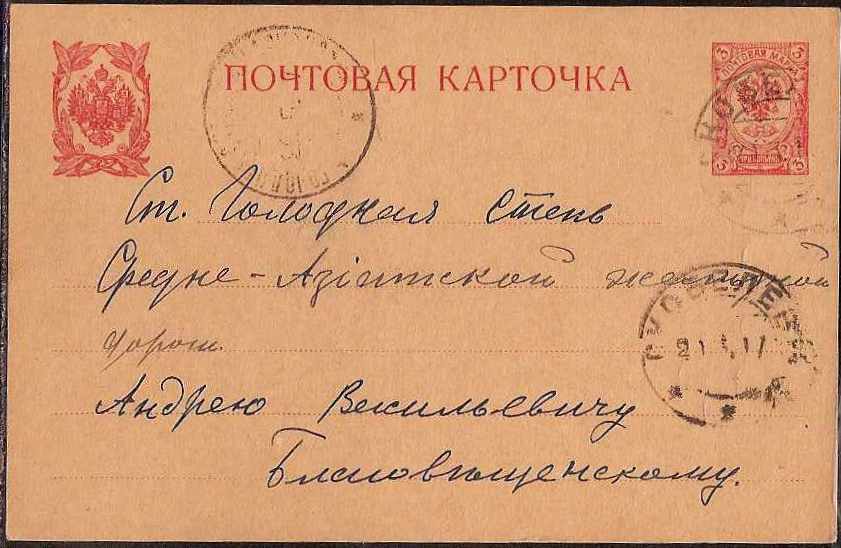 ПОЧТОВАЯ КАРТОЧКА
3 3
ПОЧТОВАЯ МАРКА
3 3
Ст. Голодная Степь
Средне-Азіятской железной
дороги.
Андрею Васильевичу
Благовѣщенскому.